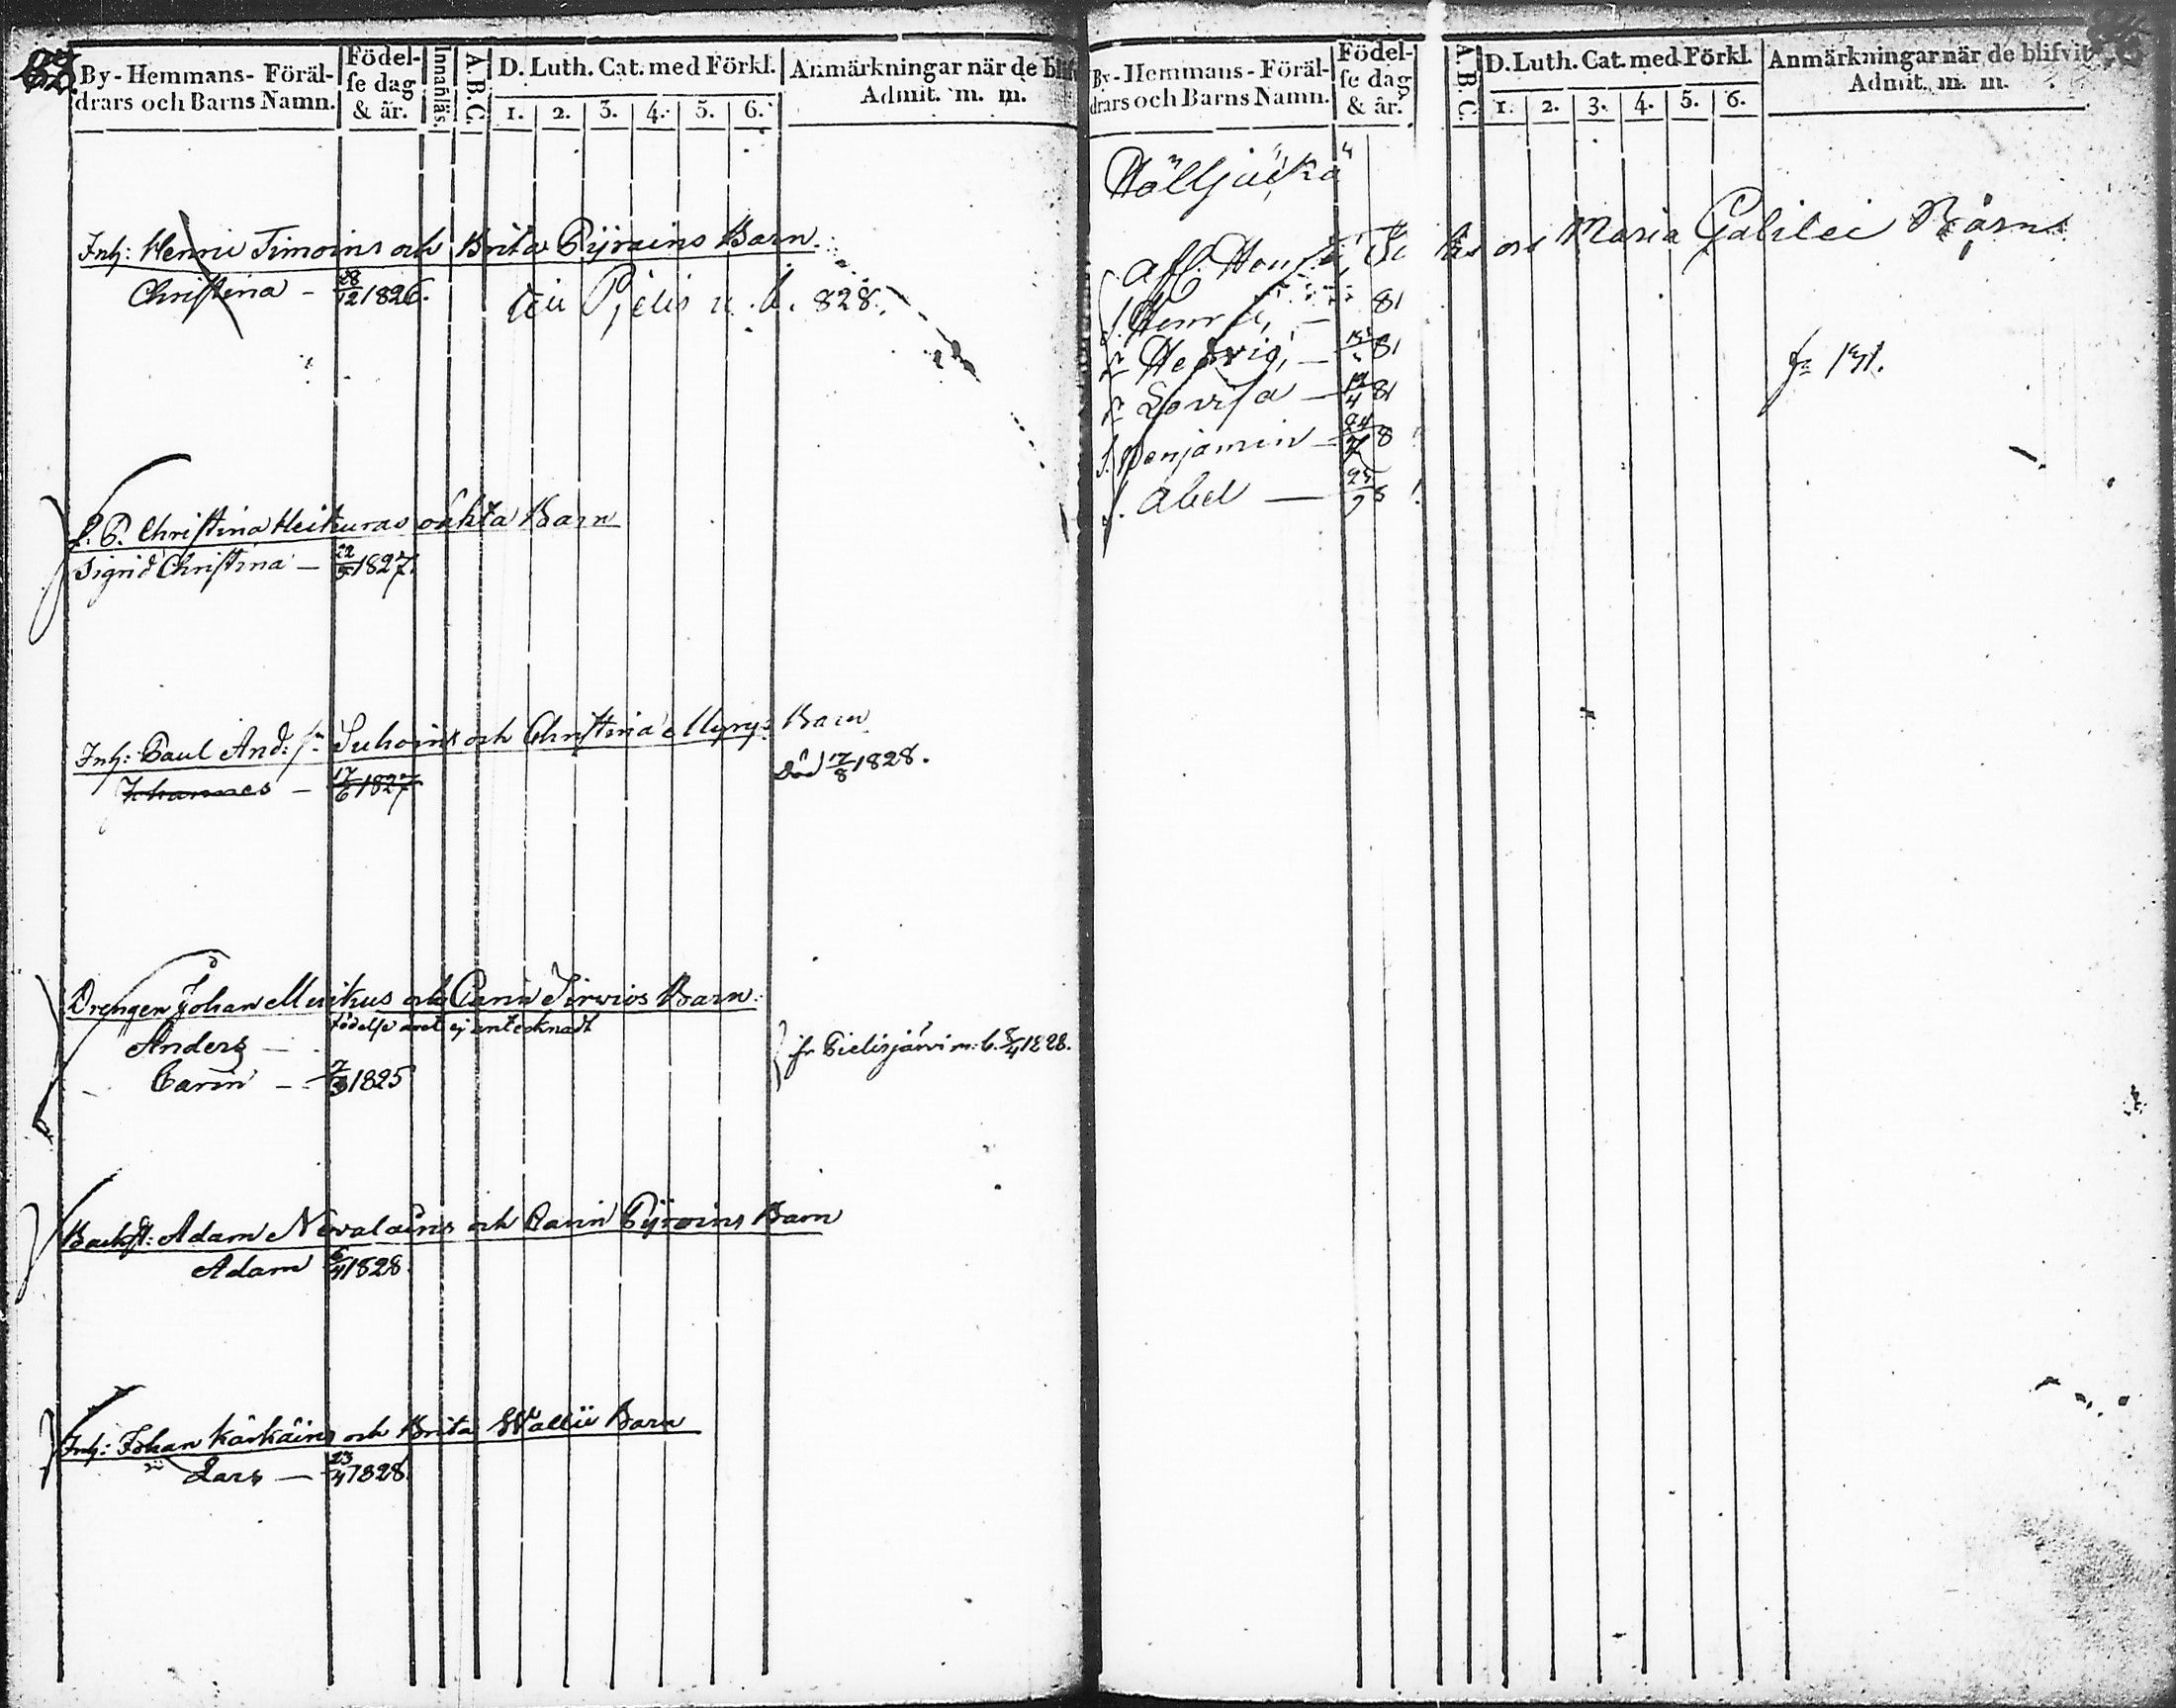 By-Hemmans-Föräl-
drars och Barns Namn.
Födel-
se dag
& år.
Innanläs.
A.B.C.
D. Luth. Cat. med Förkl.
1. 2. 3. 4. 5. 6.
Anmärkningar när de blif
Admit. m. m.
Inh: Henric Timoins och Brita Pyroins Barn
Christina – 28/12 1826.
828.
Christina Heikuras oäkta Barn
Sigrid Christina – 1827.
Inh: Paul And: s: Juhoins och Christina Myrys Barn
Johannes – 17/6 1827
död 17/8 1828.
Drengen Johan Muikus och Carin Sirviös Barn:
födelse året ej antecknadt
Anders –
Carin – 1825
fr Pielisjärvi m: b. 1828.
Backst: Adam Nevalains och Carin Pyroins Barn
Adam 1828.
Inh: Johan Kärkäins och Brita Barn
Lars – 23/4 1828.
By-Hemmans-Föräl-
drars och Barns Namn.
Födel-
se dag
& år.
A.B.C.
D. Luth. Cat. med Förkl.
1. 2. 3. 4. 5. 6.
Anmärkningar när de blifvit
Admit. m. m.
Höltjäkä
Aff. Maria Galilei Barn
Henric, – 81
Hedvig, – 81
Lovisa – 12/4 81
Benjamin – 24 8
Abel – 25